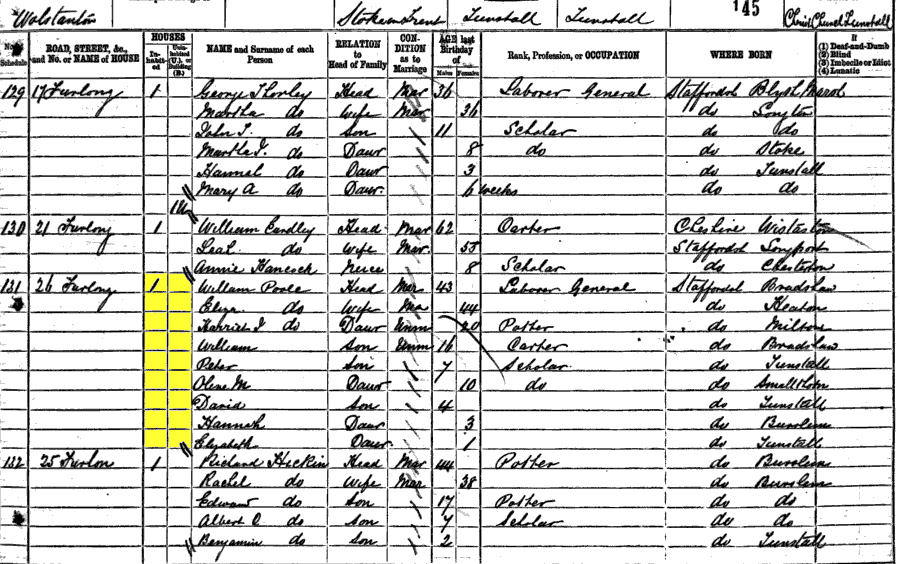 Wolstanton Stoke on Trent Tunstall Tunstall 145 Christ Church Tunstall
No. Schedule
ROAD, STREET, &c., and No. or NAME of HOUSE
HOUSES
In-habit-ed
Unin-habited (U.), or Building (B.)
NAME and Surname of each Person
RELATION to Head of Family
CON-DITION as to Marriage
AGE last Birthday of
Males Females
Rank, Profession, or OCCUPATION
WHERE BORN
If
(1) Deaf-and-Dumb
(2) Blind
(3) Imbecile or Idiot
(4) Lunatic
129 17 Furlong 1 George Thorley Head Mar 36 Laborer General Staffordsh Blyth Marsh
Martha do Wife Mar 36 do Longton
John T. do Son 11 Scholar do do
Martha J. do Daur 8 do do Stoke
Hannah do Daur 3 do Tunstall
Mary A do Daur. 6 weeks do do
130 21 Furlong 1 William Eardley Head Mar 62 Carter Cheshire Wistaston
Leah do Wife Mar. 55 Staffordsh Longport
Annie Hancock Neice 8 Scholar do Chesterton
131 26 Furlong 1 William Poole Head Mar 43 Laborer General Staffordsh Bradshaw
Eliza do Wife Ma 44 do Heaton
Harriet J do Daur Unm 20 Potter do Milton
William Son Unm 16 Carter do Bradshaw
Peter Son 7 Scholar do Tunstall
Olene M Daur 10 do do Smallthorn
David Son 4 do Tunstall
Hannah Daur 3 do Burslem
Elizabeth Daur 1 do Tunstall
132 25 Furlon 1 Richard Hickin Head Mar 44 Potter do Burslem
Rachel do Wife Mar 38 do Burslem
Edward do Son 17 Potter do do
Albert O do Son 7 Scholar do do
Benjamin do Son 2 do Tunstall